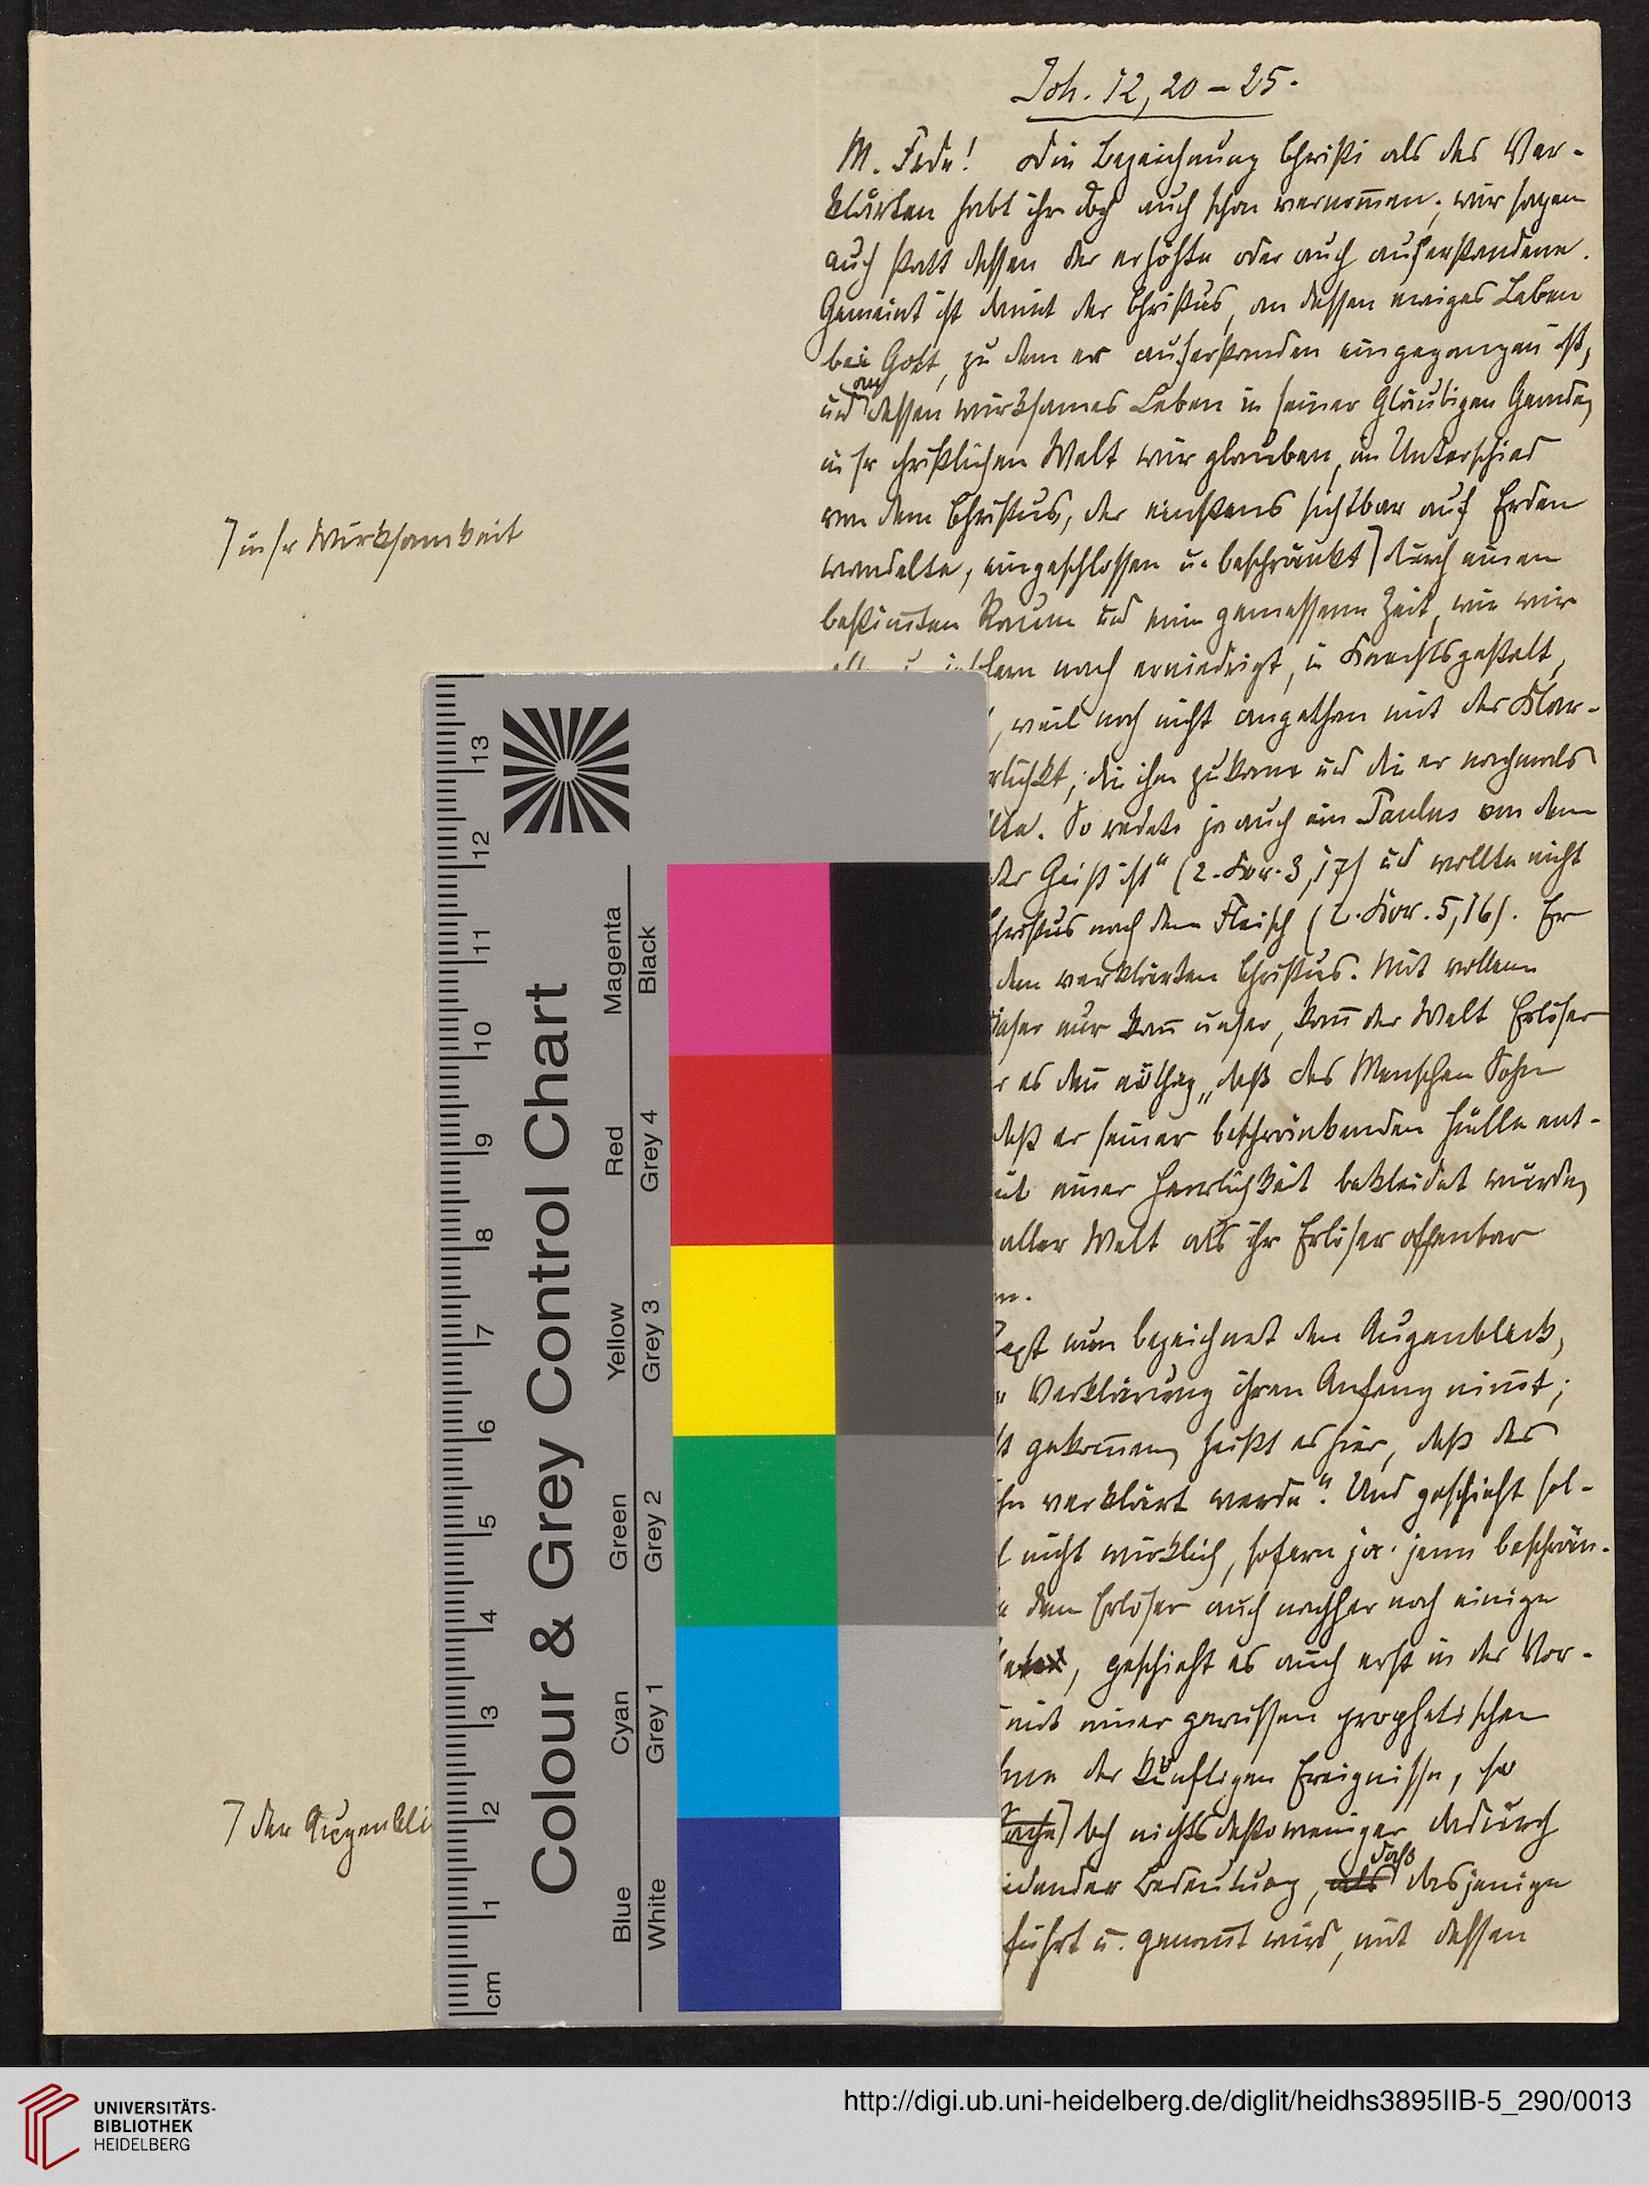 Joh. 12, 20 – 25.
M. Frde! Die Bezeichnung Christi als des Ver-
klärten habt ihr doch auch schon vernom̄en; wir sagen
auch statt dessen der erhöhte oder auch auferstandene.
Gemeint ist damit der Christus, an dessen ewiges Leben
bei Gott, zu dem er auferstanden eingegangen ist,
und an dessen wirksames Leben in seiner gläubigen Gemde,
in sr christlichen Welt wir glauben, im Unterschied
von dem Christus, der einstens sichtbar auf Erden
⌉ in sr Wirksamkeit
wandelte, eingeschlossen u. beschränkt ⌉ durch einen
bestim̄ten Raum und eine gemessene Zeit, wie wir
noch erniedrigt, in Knechtsgestalt,
, weil noch nicht angethan mit der Klar-
rlichkt, die ihm zukam und die er nachmals
lte. So redete ja auch ein Paulus von dem
der Geist ist" (2. Kor. 3, 17) und wollte nicht
hristus nach dem Fleisch (2. Kor. 5, 16). Er
dem verklärten Christus. Mit vollem
ieser nur kan̄ unser, kan̄ der Welt Erlöser
r es den̄ nöthig, „daß des Menschen Sohn
daß er seiner beschränkenden Hülle ent-
it einer Herrlichkeit bekleidet würde,
aller Welt als ihr Erlöser offenbar
n.
ext nun bezeichnet den Augenblick,
r Verklärung ihren Anfang nim̄t;
st gekom̄en, heißt es hier, daß des
hn verklärt werde". Und geschieht sol-
l nicht wirklich, sofern ja jene beschrän-
e dem Erlöser auch nachher noch einige
, geschieht es auch erst in der Vor-
mit einer gewissen prophetischen
hme der künftigen Ereignisse, so
⌉ der Augenbli
⌉ doch nichts destoweniger dadurch
idender Bedeutung, als daß dasjenige
führt u. genan̄t wird, mit dessen
Colour & Grey Control Chart
Magenta
Black
Red
Grey 4
Yellow
Grey 3
Green
Grey 2
Cyan
Grey 1
Blue
White
13
12
11
10
9
8
7
6
5
4
3
2
1
cm
UNIVERSITÄTS-
BIBLIOTHEK
HEIDELBERG
http://digi.ub.uni-heidelberg.de/diglit/heidhs3895IIB-5_290/0013